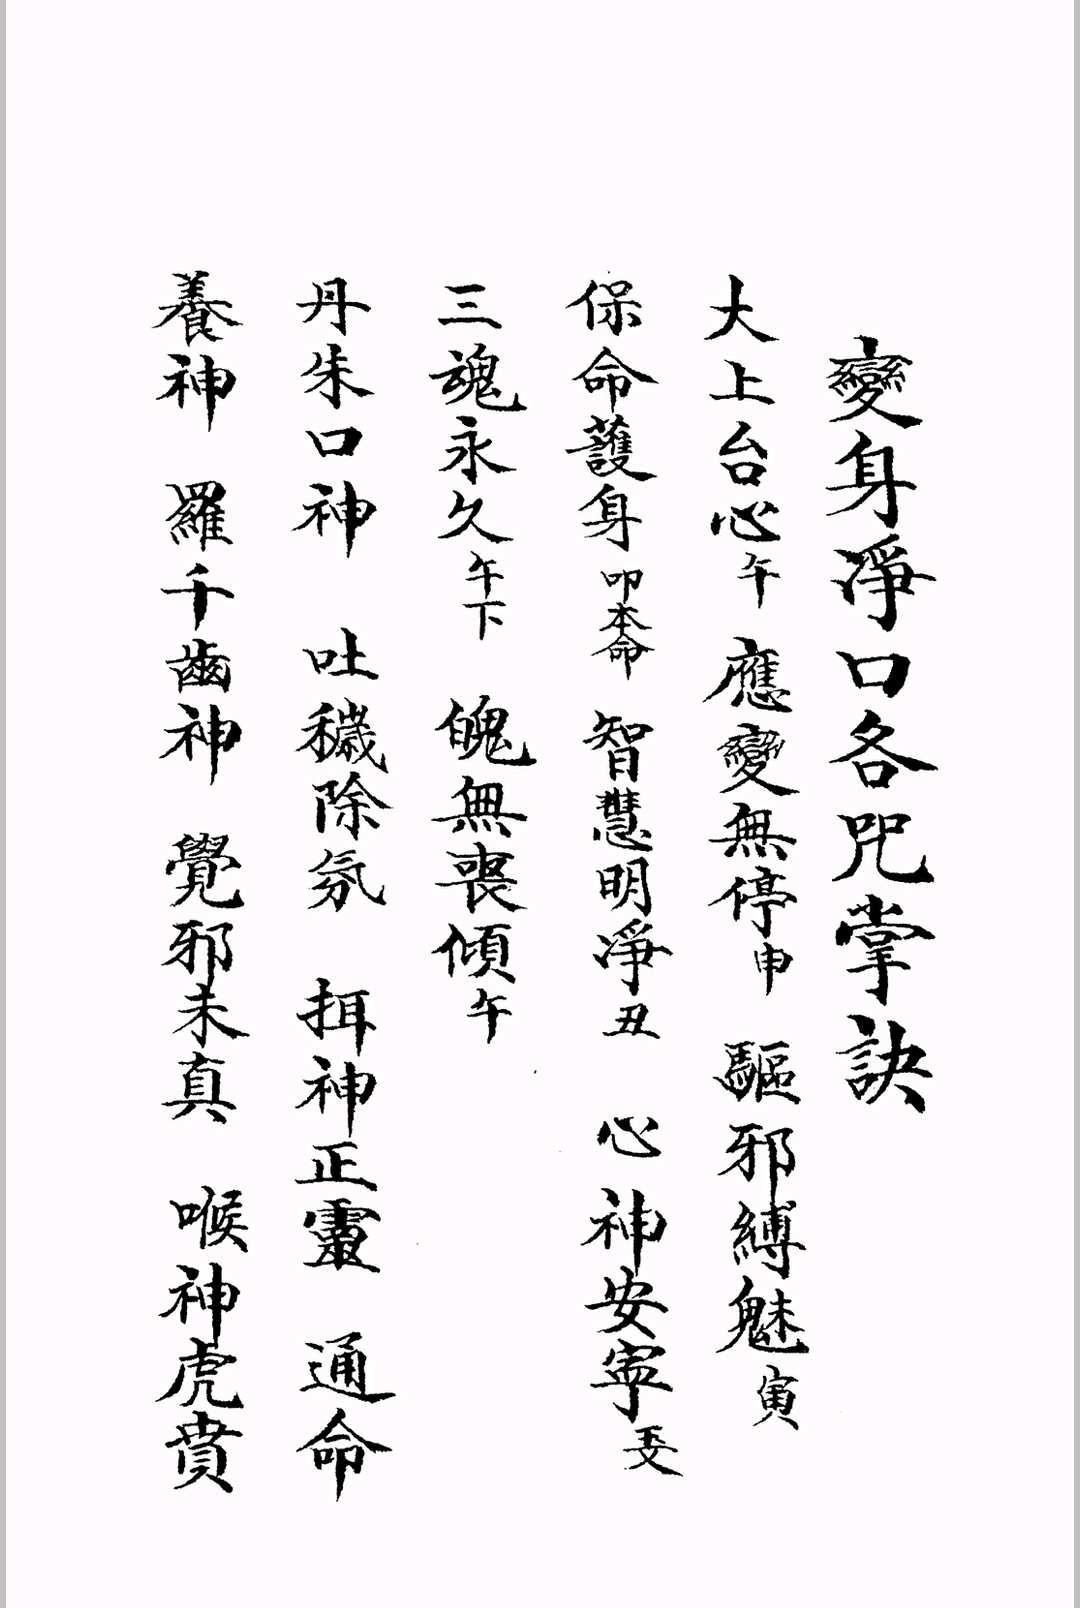 變身淨口各咒掌訣
大上台心午 應變無停申 驅邪縛魅寅
保命護身叩本命 智慧明淨丑 心神安寧
三魂永久午下 魄無喪傾午
丹朱口神 吐穢除氛 挕神正靈 通命
養神 羅千齒神 覺邪未真 喉神虎賁